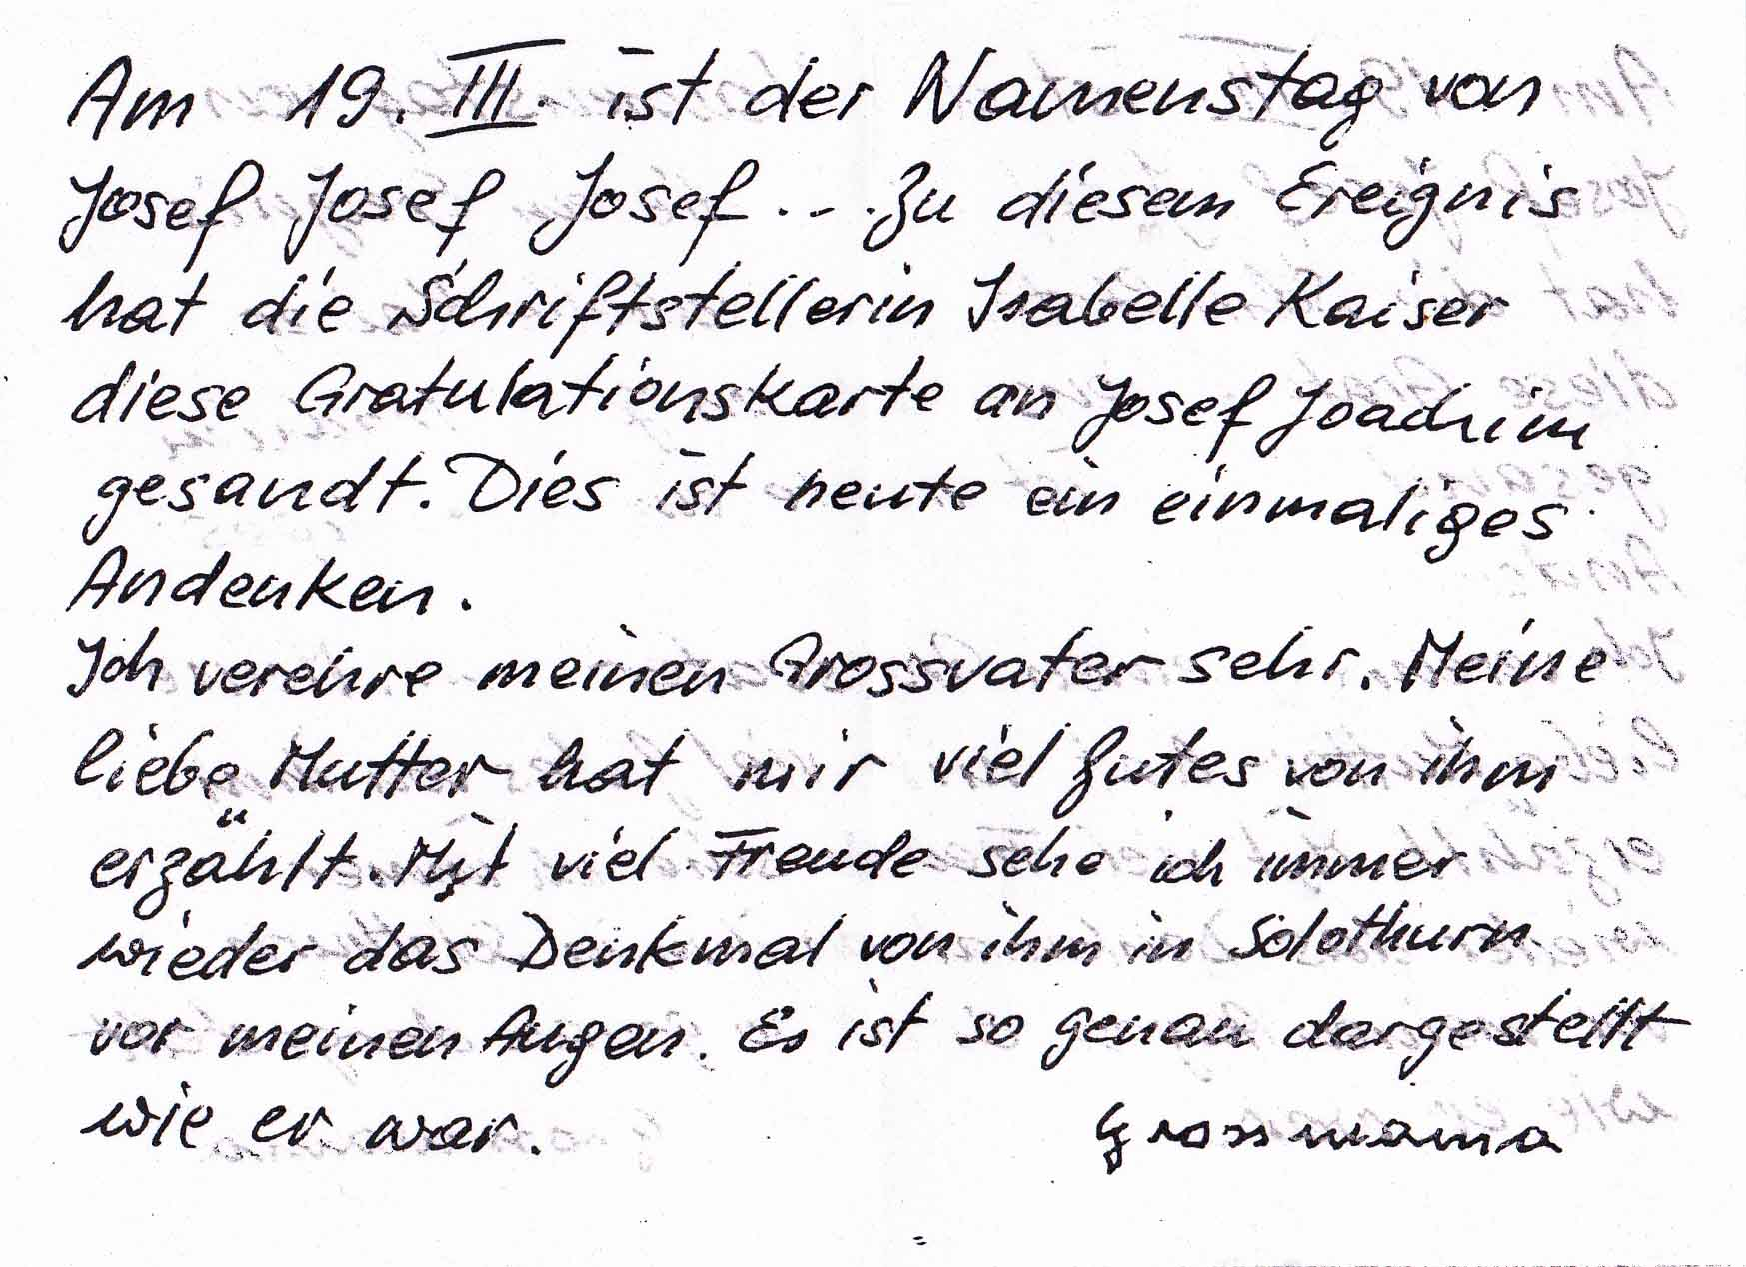 Am 19. III. ist der Namenstag von
Josef Josef Josef ... Zu diesem Ereignis
hat die Schriftstellerin Isabelle Kaiser
diese Gratulationskarte an Josef Joachim
gesandt. Dies ist heute ein einmaliges
Andenken.
Ich verehre meinen Grossvater sehr. Meine
liebe Mutter hat mir viel Gutes von ihm
erzählt. Mit viel Freude sehe ich immer
wieder das Denkmal von ihm in Solothurn
vor meinen Augen. Es ist so genau dargestellt
wie er war.
Grossmama